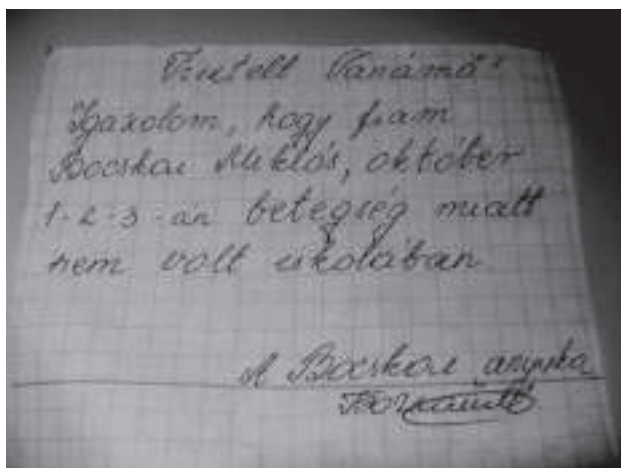 Tisztelt Tanárnő!
Igazolom, hogy fiam
Bocskai Miklós, október
1-2-3-án betegség miatt
nem volt iskolában
A Bocskai anyuka